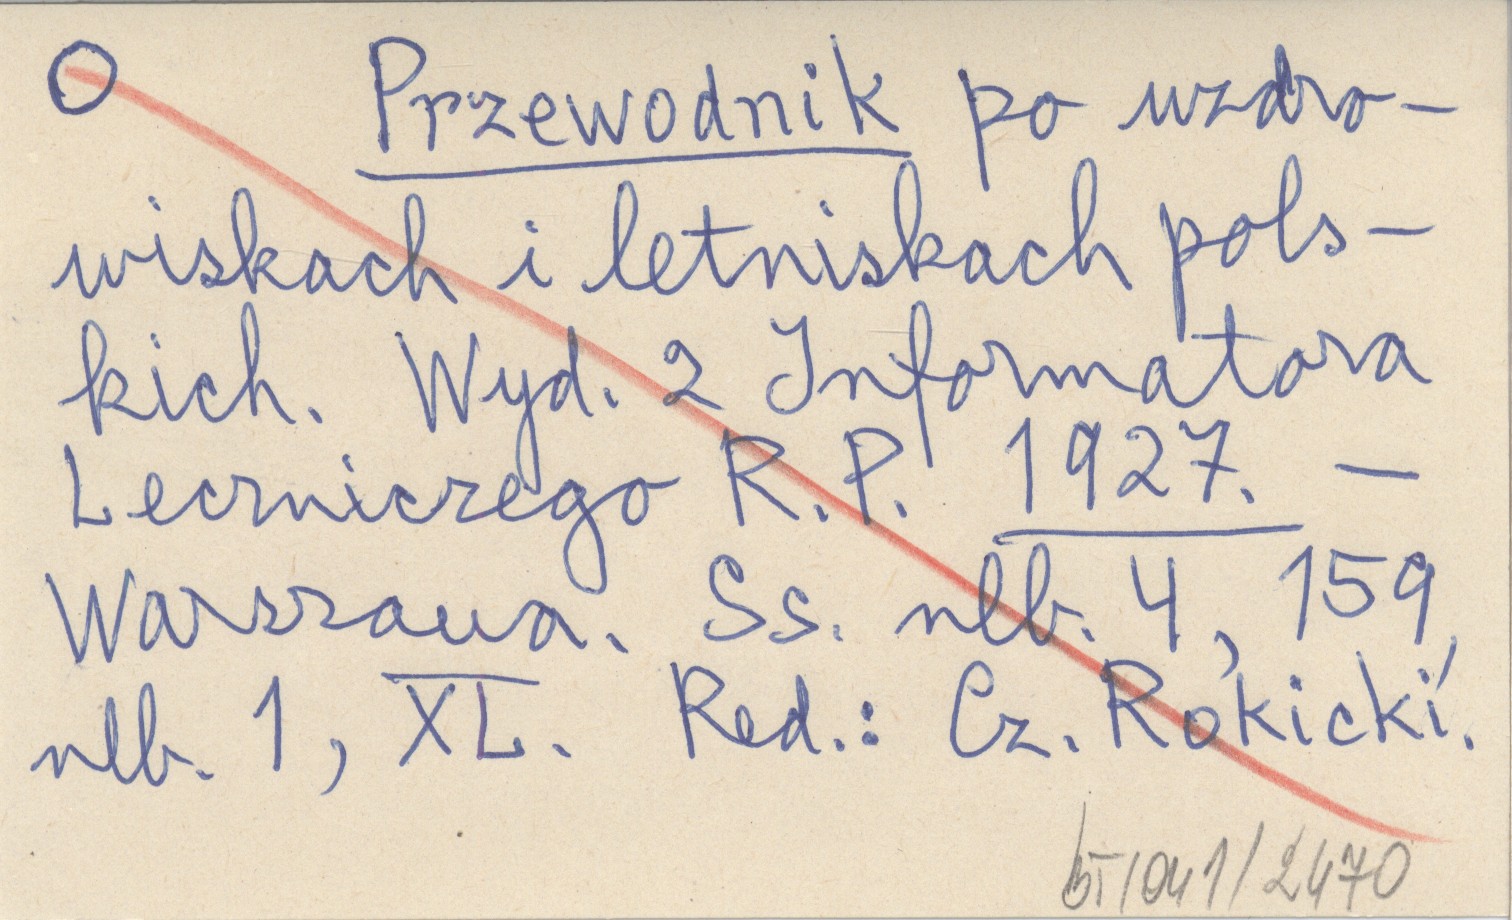 O Przewodnik po uzdro-
wiskach i letniskach pols-
kich. Wyd. 2 Informatora
Leczniczego R.P. 1927. —
Warszawa. Ss. nlb. 4, 159,
nlb. 1, XL. Red.: Cz. Rokicki.
/2470